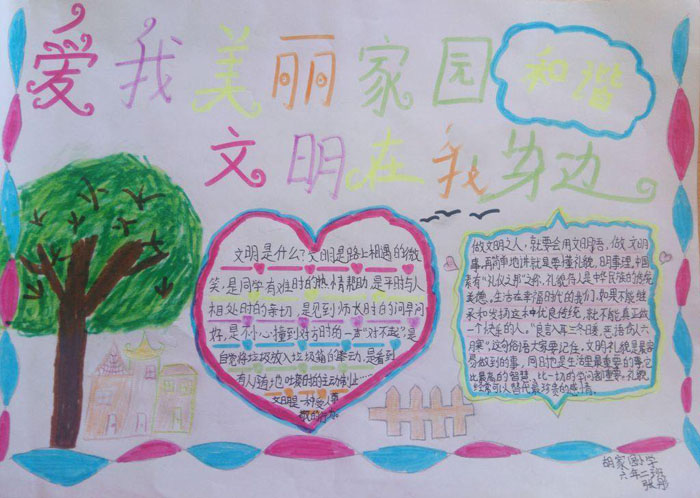 爱我美丽家园
和谐
文明在我身边
文明是什么?文明是路上相遇的微
笑,是同学有难时的热情帮助,是平时与人
相处时的亲切,是见到师长时的问早问
好,是不小心撞到对方时的一声"对不起",是
自觉将垃圾放入垃圾箱的举动,是看到
有人随地吐痰时的主动制止……
文明是一种
做文明之人,就要会用文明语,做文明
事,再简单地讲就是要懂礼貌,明事理,中国
素有"礼仪之邦"之称,礼貌待人是中华民族的传统
美德,生活在幸福时代的我们,如果不能继
承和发扬这种优良传统,就不能真正做
一个快乐的人。"良言入耳三冬暖,恶语伤人六
月寒"。这句俗语大家要记住,文明礼貌是最容
易做到的事,同时也是生活里最重要的事,它
比最高的智慧,比一切的学问都重要,礼貌
经常可以替代最珍贵的感情。
胡家 小学
六年二班
张